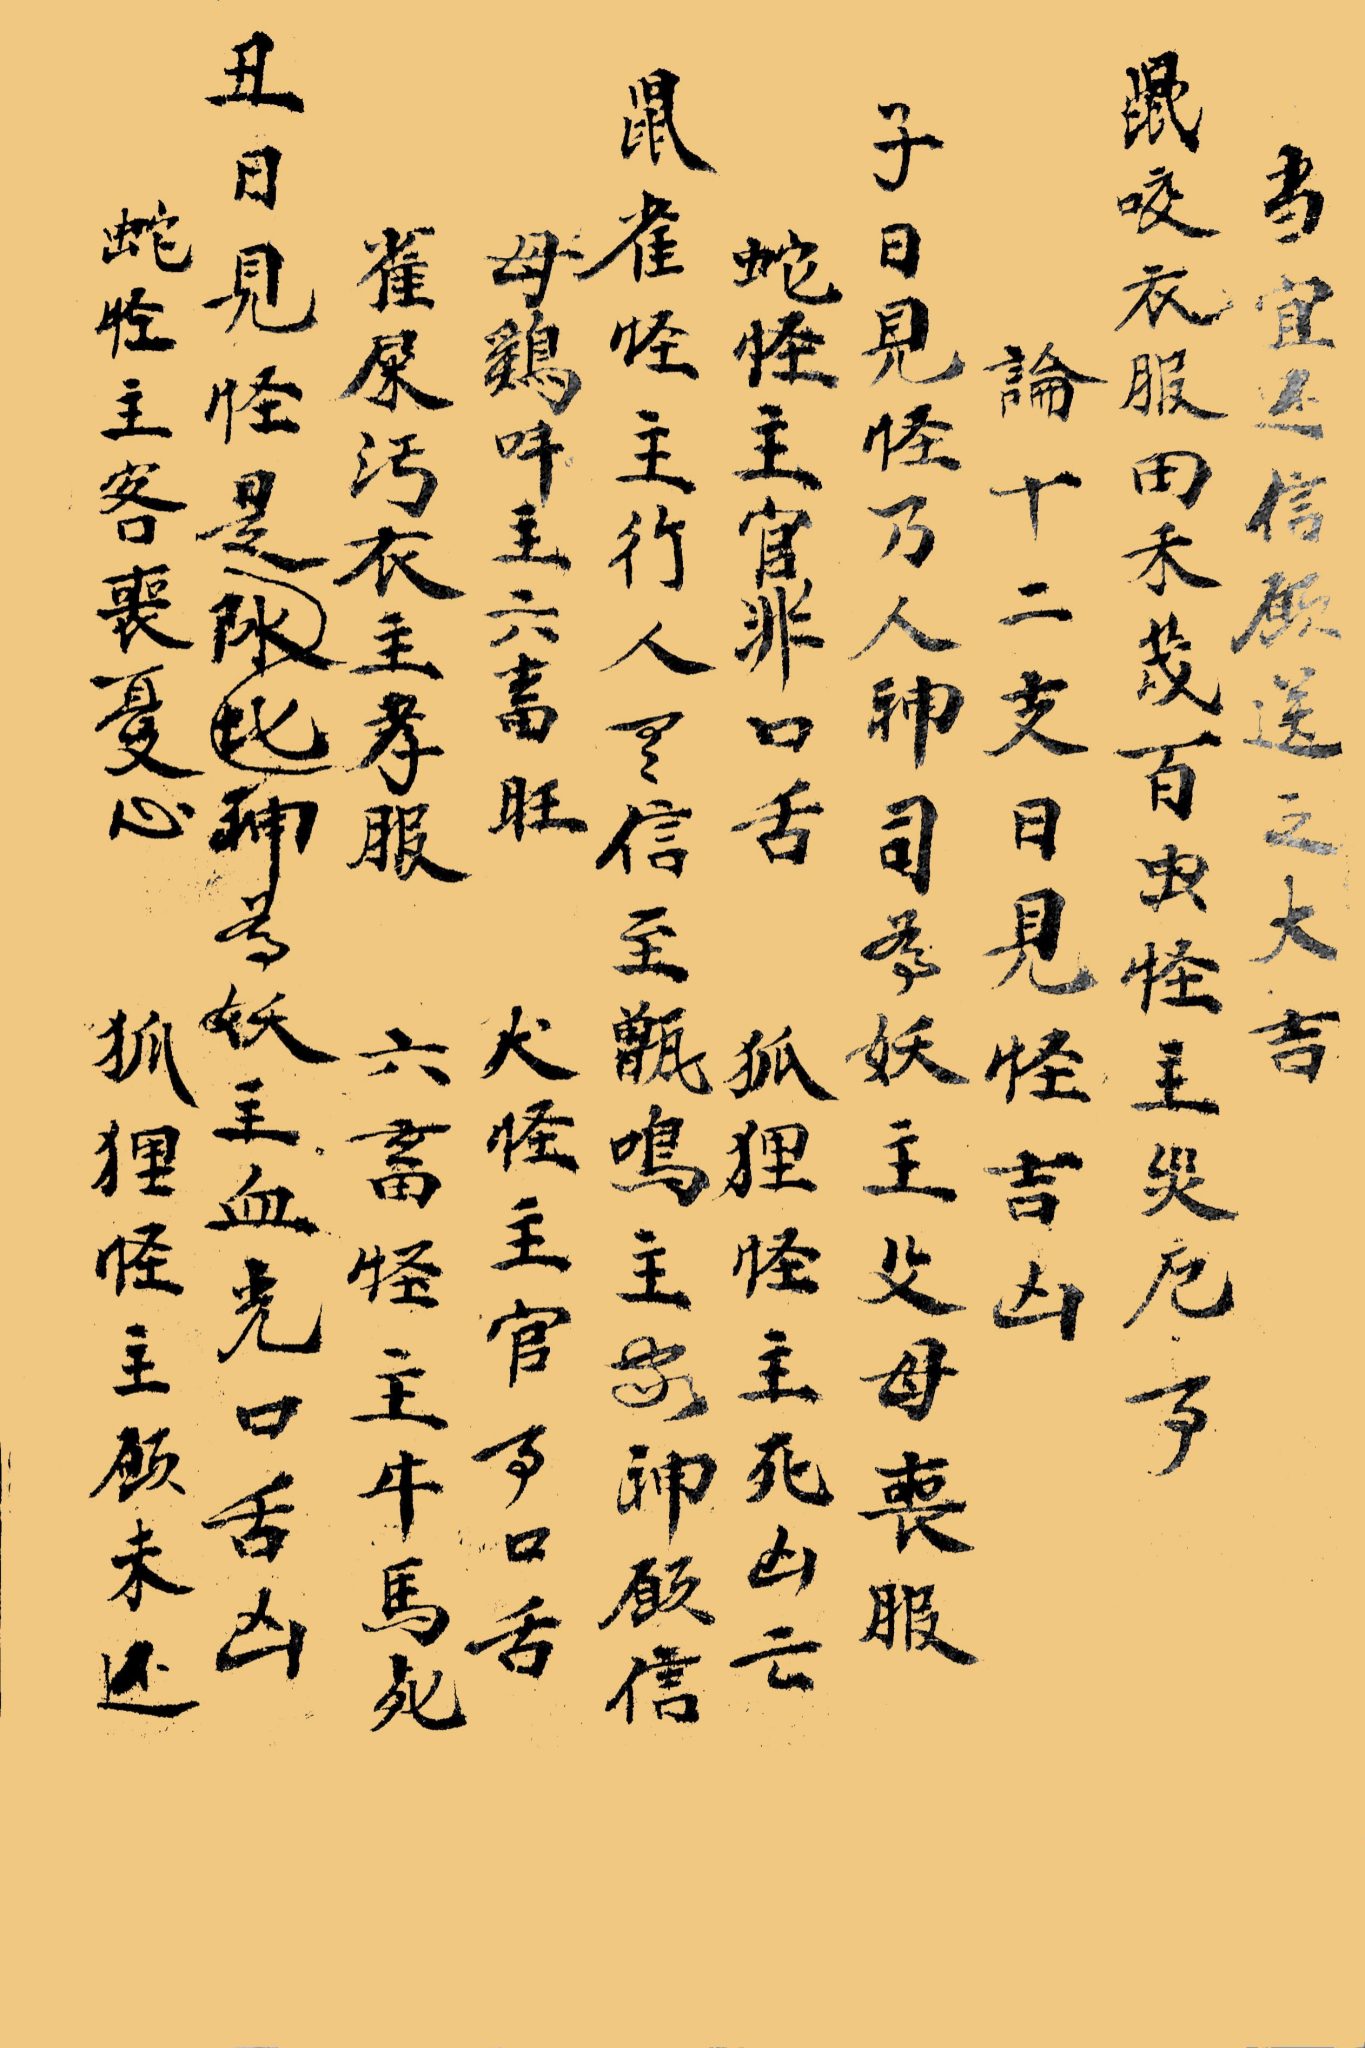 書宜还信願送之大吉
鼠咬衣服田禾荗百虫怪主災厄事
論十二支日見怪吉凶
子日見怪乃人神司為妖主父母喪服
蛇怪主官非口舌 狐狸怪主死凶亡
鼠雀怪主行人 信至甑鳴主家神願信
母鷄叫主六畜旺 犬怪主官事口舌
雀屎污衣主孝服 六畜怪主牛馬死
丑日見怪是 神為妖主血光口舌凶
蛇怪主客喪憂心 狐狸怪主願未还